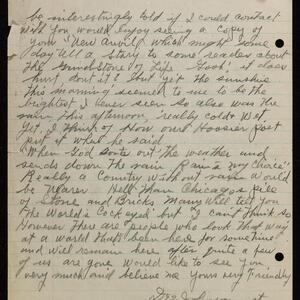 be interestingly told if I could contact
with you would enjoy seeing a copy of
your New Anvil which might some
day tell a story to some reader about
the Grindstone of Life Gosh! it does
hurt dont it? but yet the sunshine
this morning seemed to me to be the
brightest I never seen So also was the
rain this afternoon, really cold & Wet.
Yet, I think of How one Hoosier post
put it when he said
When God sorts out the weather and
sends down the rain. Rain's my choice"
Really a Country without rain would
be Nearer Hell than Chicagos pile
of Stone and Bricks. Many Will tell you
the World's Cockeyed but I Can't think so
However there are people who look that way
at a world thats been here for sometime
and will remain there after quite a few
of us are gone Would like to see you
very much and believe me Yours very Friendly